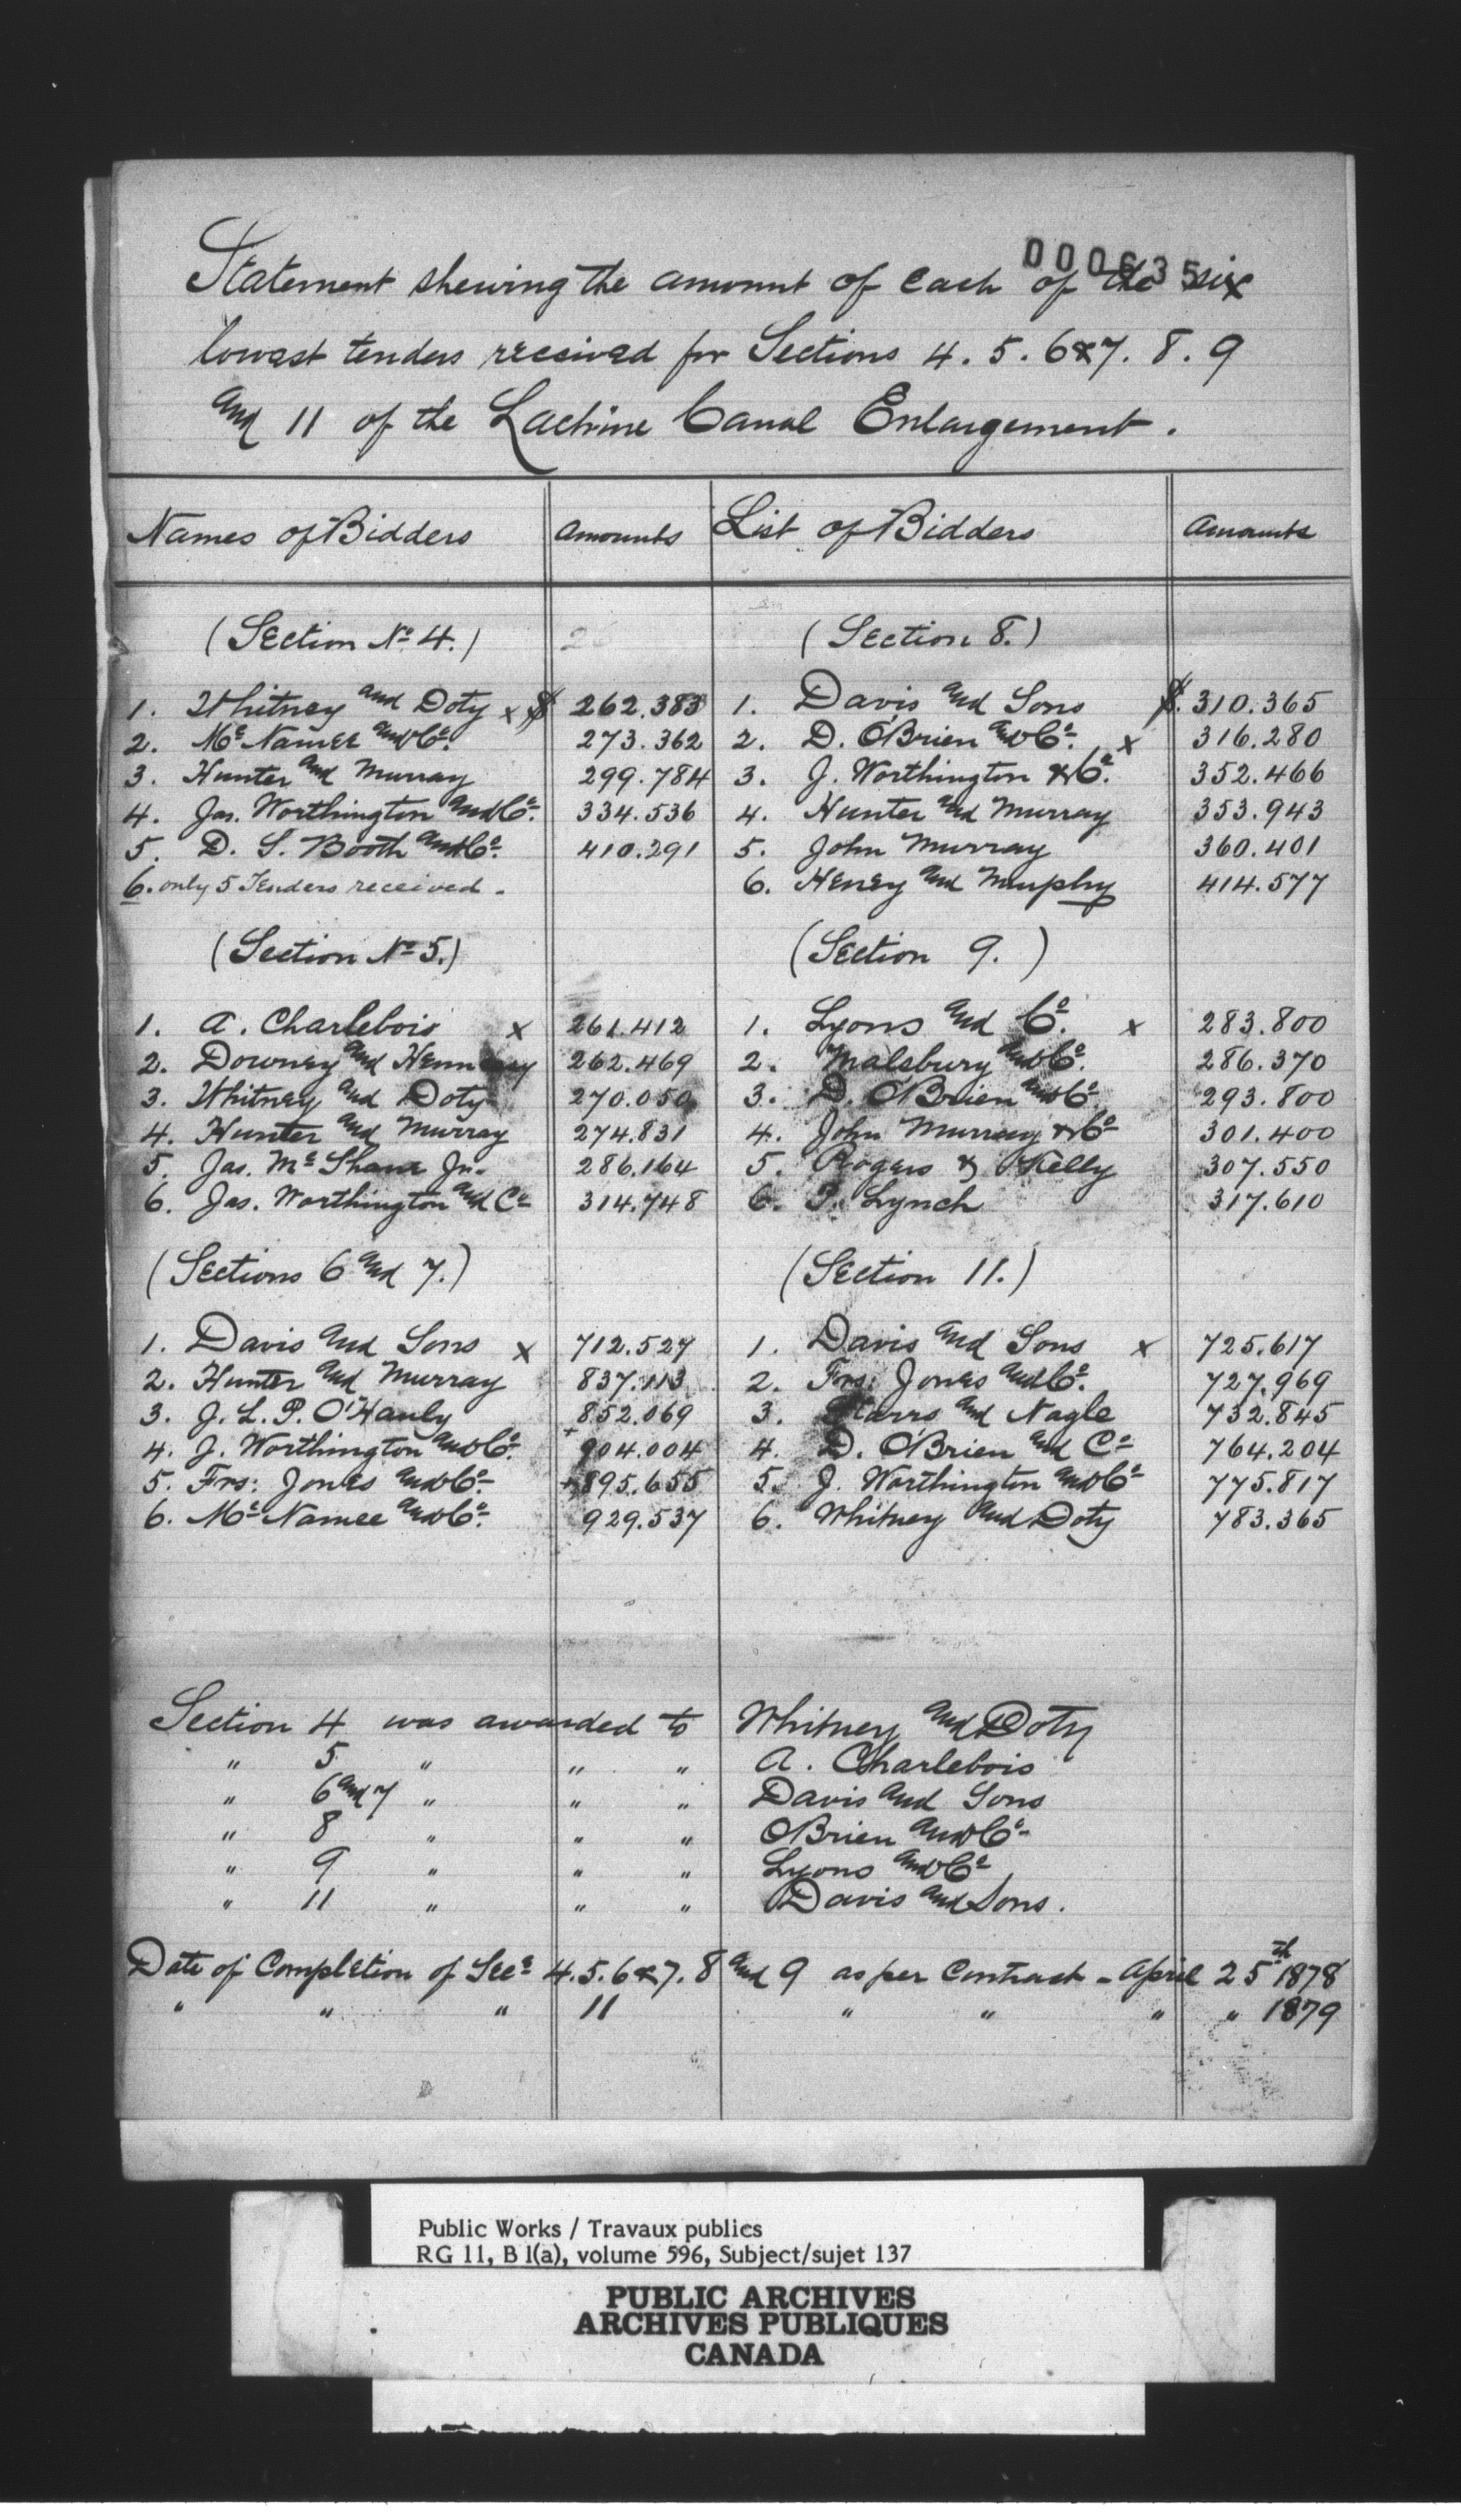 000635
Statement shewing the amount of each of the six
lowest tenders received for Sections 4. 5. 6 & 7. 8. 9
and 11 of the Lachine Canal Enlargement.
Names of Bidders Amounts List of Bidders Amounts
(Section No 4.)
1. Whitney and Doty x $ 262.383
2. Mc Namee and Co. 273.362
3. Hunter and Murray 299.784
4. Jas. Worthington and Co. 334.536
5. D. S. Booth and Co. 410.291
6. only 5 Tenders received.
(Section No 5.)
1. A. Charlebois x 261.412
2. Downey and Hennessy 262.469
3. Whitney and Doty 270.050
4. Hunter and Murray 274.831
5. Jas. Mc Shane Jr. 286.164
6. Jas. Worthington and Co 314.748
(Sections 6 and 7.)
1. Davis and Sons x 712.527
2. Hunter and Murray 837.113
3. J. L. P. O'Hanly 852.069
4. J. Worthington and Co. + 904.004
5. Frs: Jones and Co. + 895.655
6. Mc Namee and Co. 929.537
(Section 8.)
1. Davis and Sons $. 310.365
2. D. O'Brien and Co. x 316.280
3. J. Worthington & Co. 352.466
4. Hunter and Murray 353.943
5. John Murray 360.401
6. Heney and Murphy 414.577
(Section 9.)
1. Lyons and Co. x 283.800
2. Malsbury and Co. 286.370
3. D. O'Brien and Co 293.800
4. John Murray & Co 301.400
5. Rogers & Kelly 307.550
6. P. Lynch 317.610
(Section 11.)
1. Davis and Sons x 725.617
2. Frs: Jones and Co. 727.969
3. and Nagle 732.845
4. D. O'Brien and Co 764.204
5. J. Worthington and Co 775.817
6. Whitney and Doty 783.365
Section 4 was awarded to Whitney and Doty
" 5 " " " A. Charlebois
" 6 and 7 " " " Davis and Sons
" 8 " " " O'Brien and Co
" 9 " " " Lyons and Co
" 11 " " " Davis and Sons.
Date of Completion of Secs 4.5.6 & 7. 8 and 9 as per Contract - April 25th 1878
" " " 11 " " " " 1879
Public Works / Travaux publics
RG 11, B 1(a), volume 596, Subject/sujet 137
PUBLIC ARCHIVES
ARCHIVES PUBLIQUES
CANADA